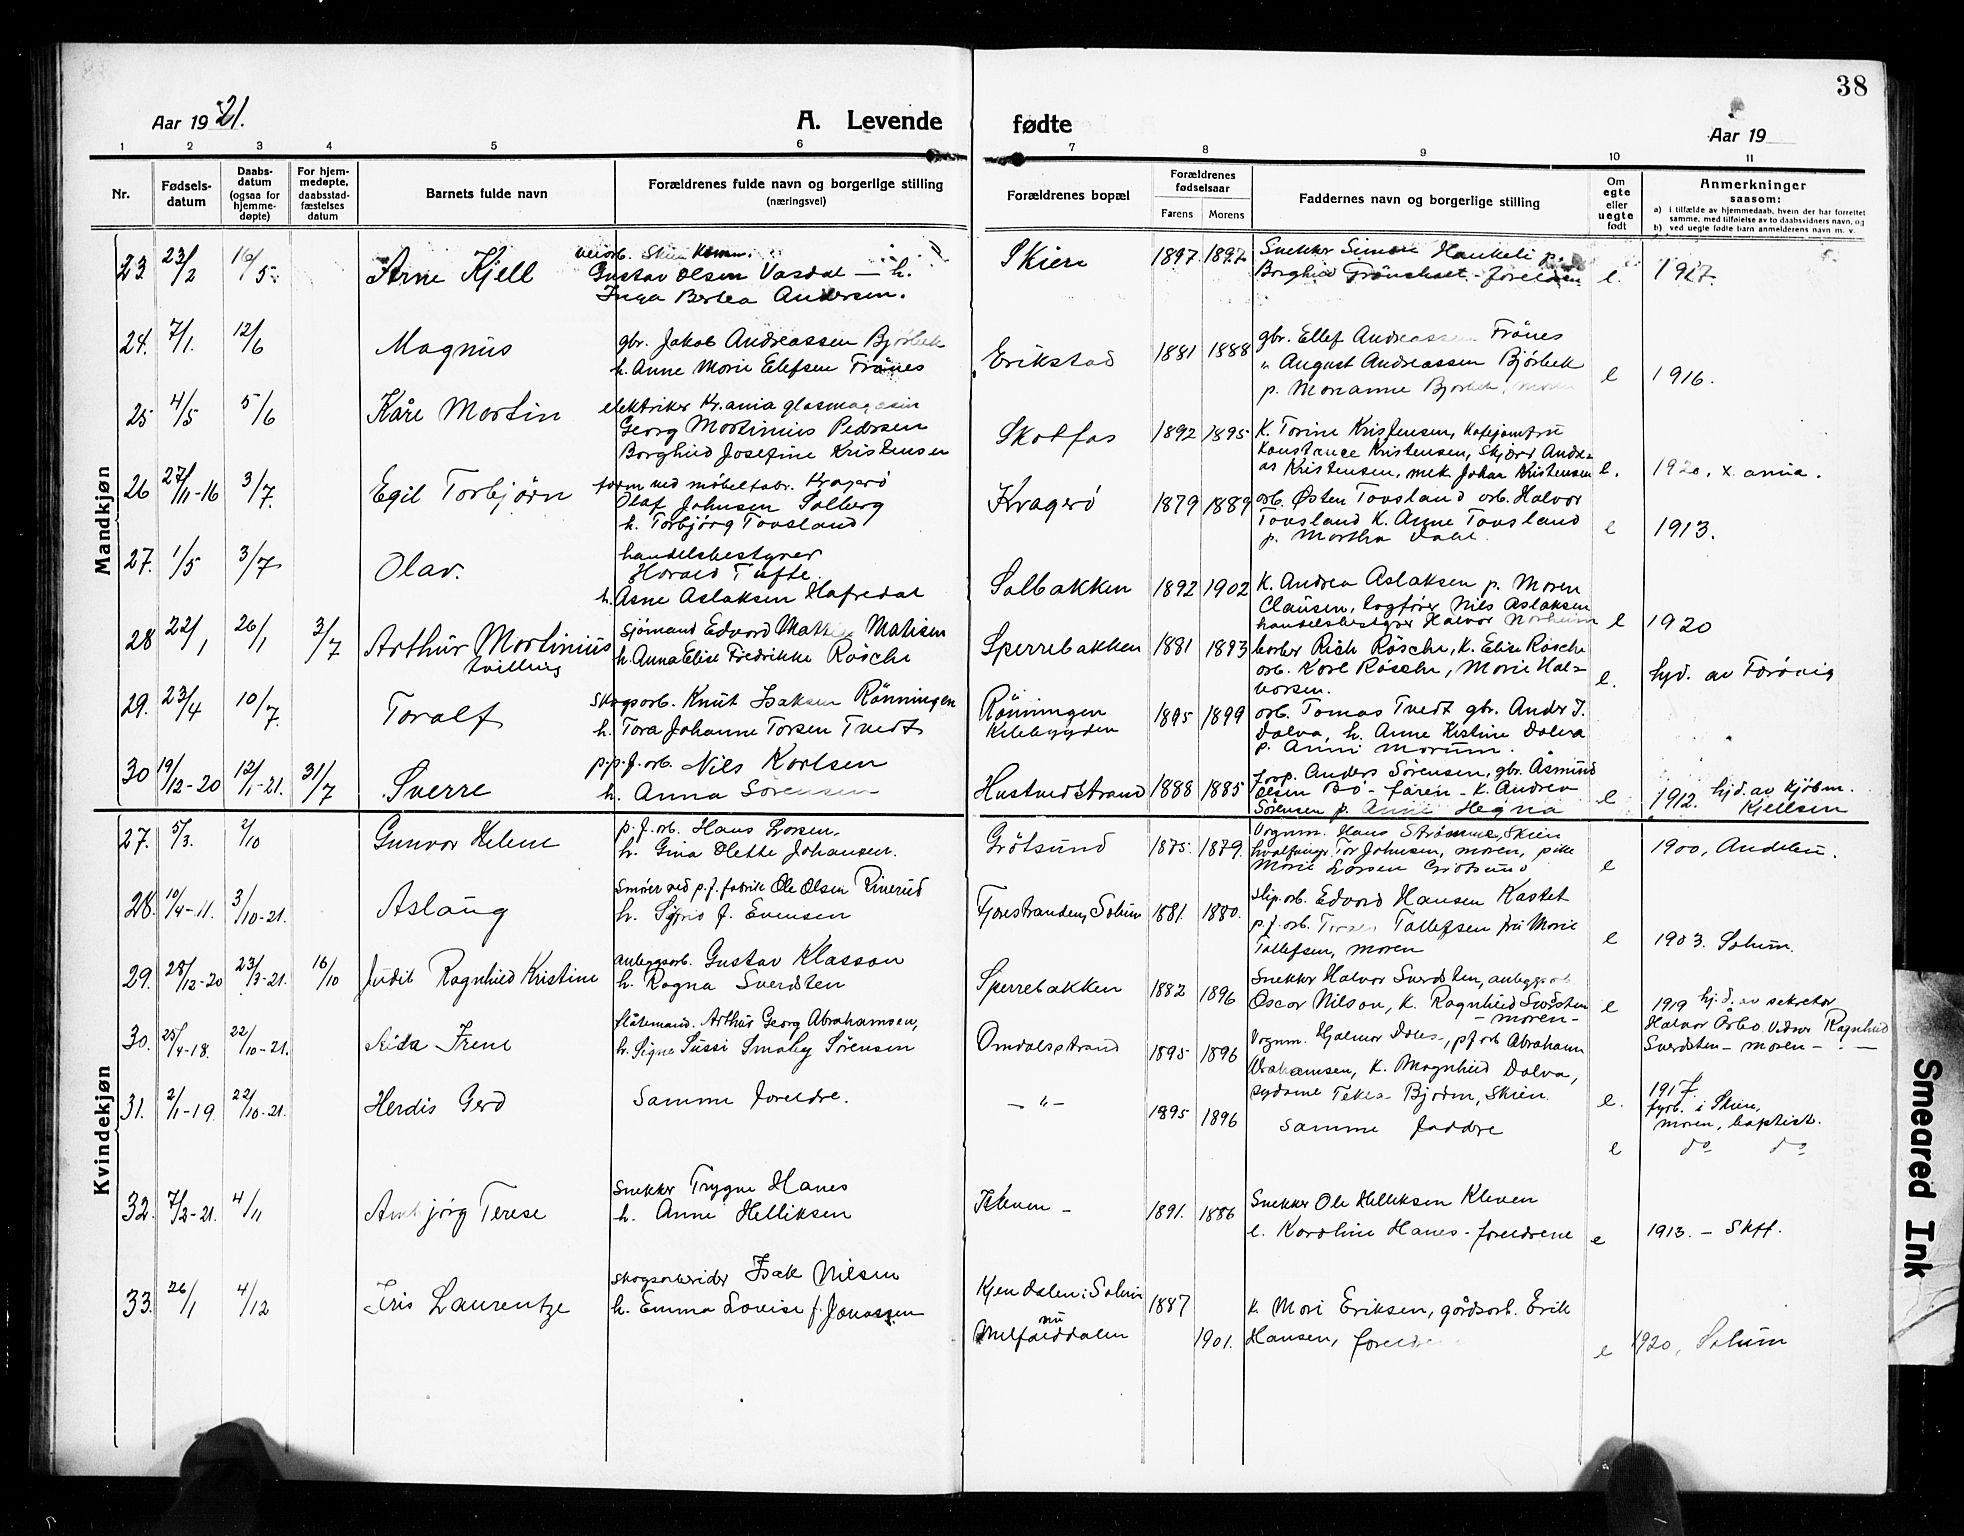 38
Aar 1921.
A. Levende
fødte
Aar 19
1 2 3 4 5 6 7 8 9 10 11
Nr.
Fødsels-
datum
Daabs-
datum
(ogsaa for
hjemme-
døpte)
For hjem-
medøpte,
daabsstad-
fæstelses
datum
Barnets fulde navn
Forældrenes fulde navn og borgerlige stilling
(næringsvei)
Forældrenes bopæl
Forældrenes
fødselsaar
Farens Morens
Faddernes navn og borgerlige stilling
Om
egte
eller
uegte
født
Anmerkninger
saasom:
a) i tilfælde av hjemmedaab, hvem der har forrettet
samme, med tilføielse av to daabsvidners navn, og
b) ved uegte fødte barn anmelderens navn m. v.
Mandkjøn
23 23/2 16/5 Arne Kjell
veiarb. Skien Komm.
Gustav Olsen Vasdal — h.
Inga Bertea Andersen.
Skien 1897 1897
Snekker Simon Haukeli p.
Borghild Grönstset - forældren
e. 1917.
24. 7/1. 12/6 Magnus
gbr. Jakob Andreassen Bjørbek
h. Anne Marie Elefsen Frånes
Erikstad 1881 1888
gbr. Ellef Andreassen Frånes
" August Andreassen Bjørbek
p. Marianne Bjørbek, moren
e 1916.
25 4/5 5/6 Kåre Martin
elektriker Kr.ania glasmagasin
Georg Martinius Pedersen
Borghild Josefine Kristensen
Skotfos 1892 1895
K. Torine Kristensen, Kafejomfru
Konstance Kristensen, Skjærer Andre-
as Kristensen, mek. Johan Kristensen
e. 1920. x.ania.
26 27/11-16 3/7. Egil Torbjørn
form ved møbelfabr. Kragerø
Olaf Johnsen Solberg
h. Torbjørg Tovsland
Kragerö 1879 1889
arb. Østen Tovsland arb. Halvor
Tovsland K. Anne Tovsland
p. Martha Dahl.
e 1913.
27. 1/5 3/7 Olav.
handelsbestyrer
Harald Tufte.
h. Asne Aslaksen Hafredal
Solbakken 1892 1902
K. Andrea Aslaksen p. Maren
Clausen, lagfører Nils Aslaksen
handelsbestyrer Halvor Norheim
e 1920
28 22/1 26/1 3/7 Arthur Martinius
tvilling
sjømand Edvard Mathias Matisen
h. Anna Elise Fredrikke Røsche
Sperrebakken 1881 1893
barber Rich Røsche, K. Elise Røsche
arb. Karl Røsche, Marie Hal-
vorsen.
e. hjd. av Farøvig
29. 23/4 10/7. Toralf
skogsarb. Knut Isaksen Rønningen
h. Tora Johanne Torsen Tvedt
Rønningen
Kilebygden 1895 1899
arb. Tomas Tvedt gbr. Ander J.
Dalva, h. Anne Kistine Dalva
p. Anni Morum.
30 19/12-20 12/1-21. 31/7 Sverre
p.p.f. arb. Nils Karlsen
h. Anna Sørensen
Hustvedtstrand 1888 1885
Anders Sørensen, gbr. Åsmund
Olsen Bö - faren - K. Andrea
Sörensen p. Anne Hegna
e 1912. hjd. av kjøbm.
Kjellsen
Kvindekjøn
27. 5/3. 2/10 Gunvor Helene
p.f. arb. Hans Larsen.
h. Gina Olette Johansen.
Gråtsund 1875. 1879.
Vognm. Hans Strømme, Skien
hvalfanger Tor Johnsen, moren, pike
Marie Larsen Gråtsund
e 1900, Andebu.
28. 10/4-11. 3/10-21. Aslaug
smører ved p.f. fabrik Ole Olsen Rinerud
h. Sigrid J. Evensen
Fjærestranden, Solum 1881. 1880.
slip.arb. Edvard Hansen Kastet
p.f. arb. Tollefsen fru Marie
Tollefsen, moren
e 1903. Solum.
29. 28/12-20 23/3-21. 16/10 Judit Ragnhild Kristine
anlegsarb. Gustav Klasson
h. Ragna Sverdsten
Sperrebakken 1882 1896
Snekker Halvor Sverdsten, anleggsarb
Oscar Nilson, K. Ragnhild Sverdsten
- moren -
e 1919 hj.d. av sekretær
Halvor Årbo. Vidner Ragnhild
Sverdsten - moren -
30. 25/4-18. 22/10-21. Aida Irene
flåtemand. Arthur Georg Abrahamsen,
h. Signe Sussi Smaby Sørensen
Omdalsstrand 1895 1896
Vognm. Hjalmar Dolva, p f arb Abraham
Abrahamsen, K. Magnhild Dalva,
sydame Tekla Bjørdm, Skien.
e. 1917.
fyrb. i Skien,
moren, baptist.
31. 2/1-19. 22/10-21. Herdis Gerd
Samme foreldre.
— " — 1895 1896
samme faddre
e do do
32. 7/2-21. 4/11 Ambjørg Terese
Snekker Trygve Hanes
h. Anne Helliksen
Kleven - 1891. 1886
Snekker Ole Helliksen Kleven
e. Karoline Hanes - foreldrene
e 1913. - Skff.
33. 26/1 4/12 Iris Laurentze
skogsarbeider Isak Nilsen
h. Emma Lovise f. Jonassen
Kjendalen i Solum
nu
Melfalddalen 1887 1901.
K. Mari Eriksen, gårdsarb. Erik
Hansen, foreldrene
e 1920, Solum
Smeared Ink